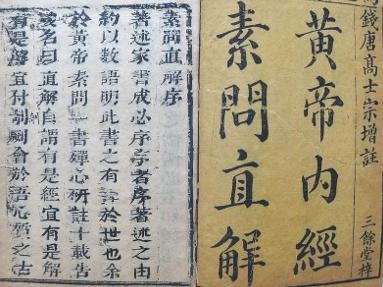 錢唐高士宗增註
三餘堂梓
黃帝內經
素問直解
素問直解序
著述家書成必序者序著述之由
約以數語明此書之有於世也余
於黃帝素問一書殫心硏註十載告
竣名曰直解自謂有是經宜有是解
有是解宜付剞劂會於吾心質之古